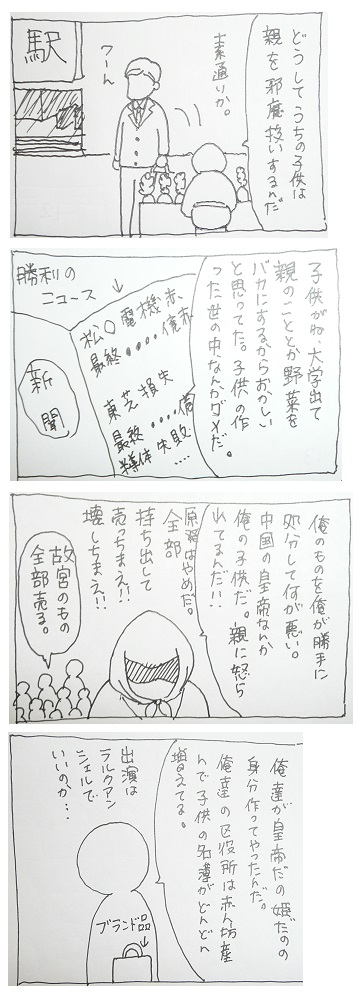 どうしてうちの子供は
親を邪魔扱いするんだ
素通りか。
うーん
駅
子供がね、大学出て
親のこととか野菜を
バカにするからおかしい
と思ってた。子供の作
った世の中なんかダメだ。
勝利の
ニュース
松〇電機赤
最終・・・・億赤
東芝 損失
最終・・・・億
半導体失敗
・・・・
新聞
俺のものを俺が勝手に
処分して何が悪い。
中国の皇帝なんか
俺の子供だ。親に怒ら
れてるんだ!!
原発はやめだ。
全部
持ち出して
売っちまえ!!
壊しちまえ!!
故宮のもの
全部売る。
俺達が皇帝だの姫だのの
身分作ってやったんだ。
俺達の区役所は赤ん坊産
んで子供の名簿がどんどん
増えてる。
出演は
ラルクアン
シェルで
いいのか…
ブランド品